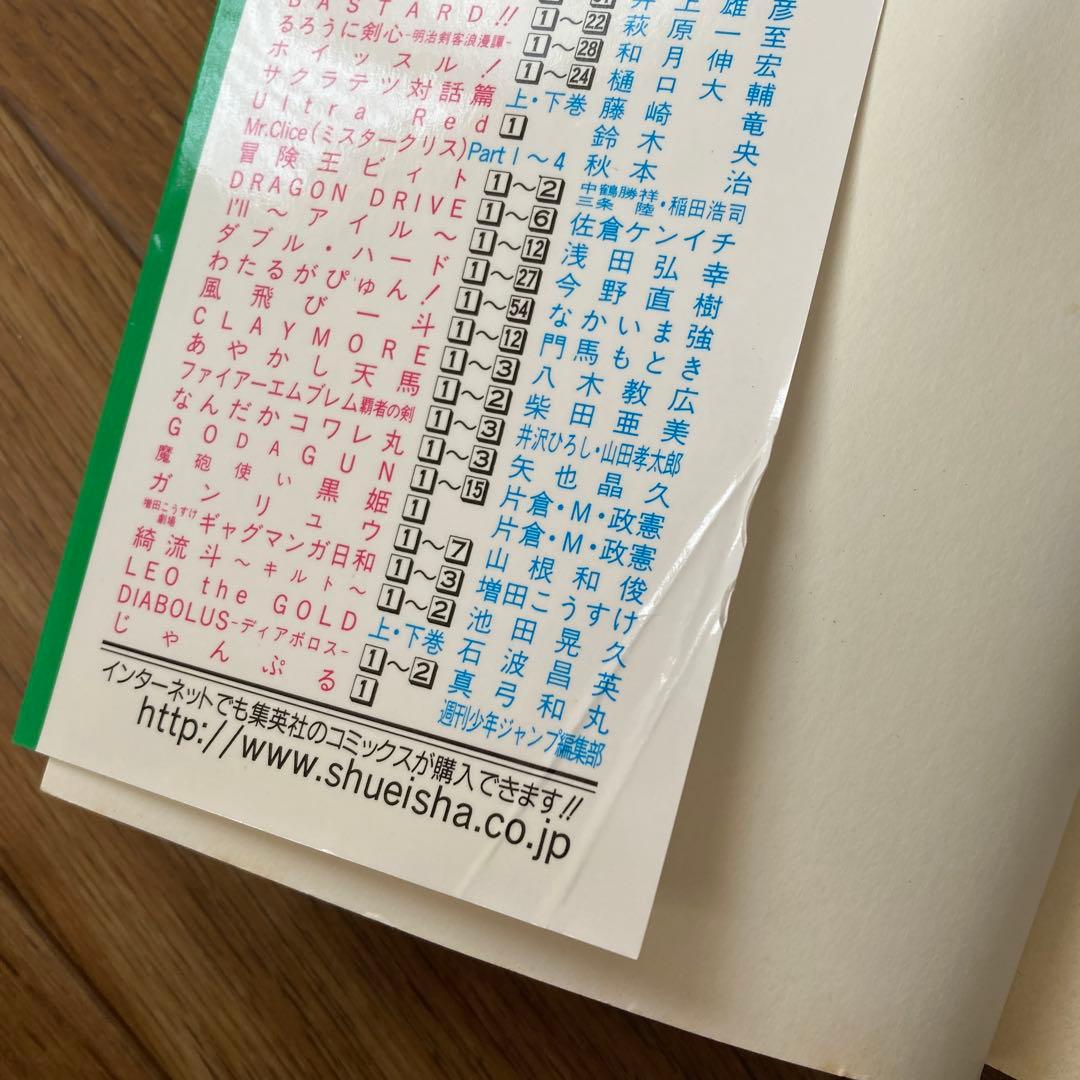 31 井上雄彦
BASTARD!! 1～22 萩原一至
るろうに剣心-明治剣客浪漫譚- 1～28 和月伸宏
ホイッスル! 1～24 樋口大輔
サクラテツ対話篇 上・下巻 藤崎竜
Ultra Red 1 鈴木央
Mr.Clice(ミスタークリス) Part1～4 秋本治
冒険王ビィト 1～2 中鶴勝祥 三条陸・稲田浩司
DRAGON DRIVE 1～6 佐倉ケンイチ
I'll～アイル～ 1～12 浅田弘幸
ダブル・ハード! 1～27 今野直樹
わたるがぴゅん! 1～54 なかいま強
風飛び一斗 1～12 門馬もとき
CLAYMORE 1～3 八木教広
あやかし天馬 1～2 柴田亜美
ファイアーエムブレム覇者の剣 1～3 井沢ひろし・山田孝太郎
なんだかコワレ丸 1～3 矢也晶久
GODAGUN 1～15 片倉・M・政憲
魔砲使い黒姫 1 片倉・M・政憲
ガンリュウ 1～7 山根和俊
増田こうすけ劇場 ギャグマンガ日和 1～3 増田こうすけ
綺流斗～キルト～ 1～2 池田晃久
LEO the GOLD 上・下巻 石波昌英
DIABOLUS-ディアボロス- 1～2 真弓和丸
じゃんぷる 1 週刊少年ジャンプ編集部
インターネットでも集英社のコミックスが購入できます!!
http://www.shueisha.co.jp